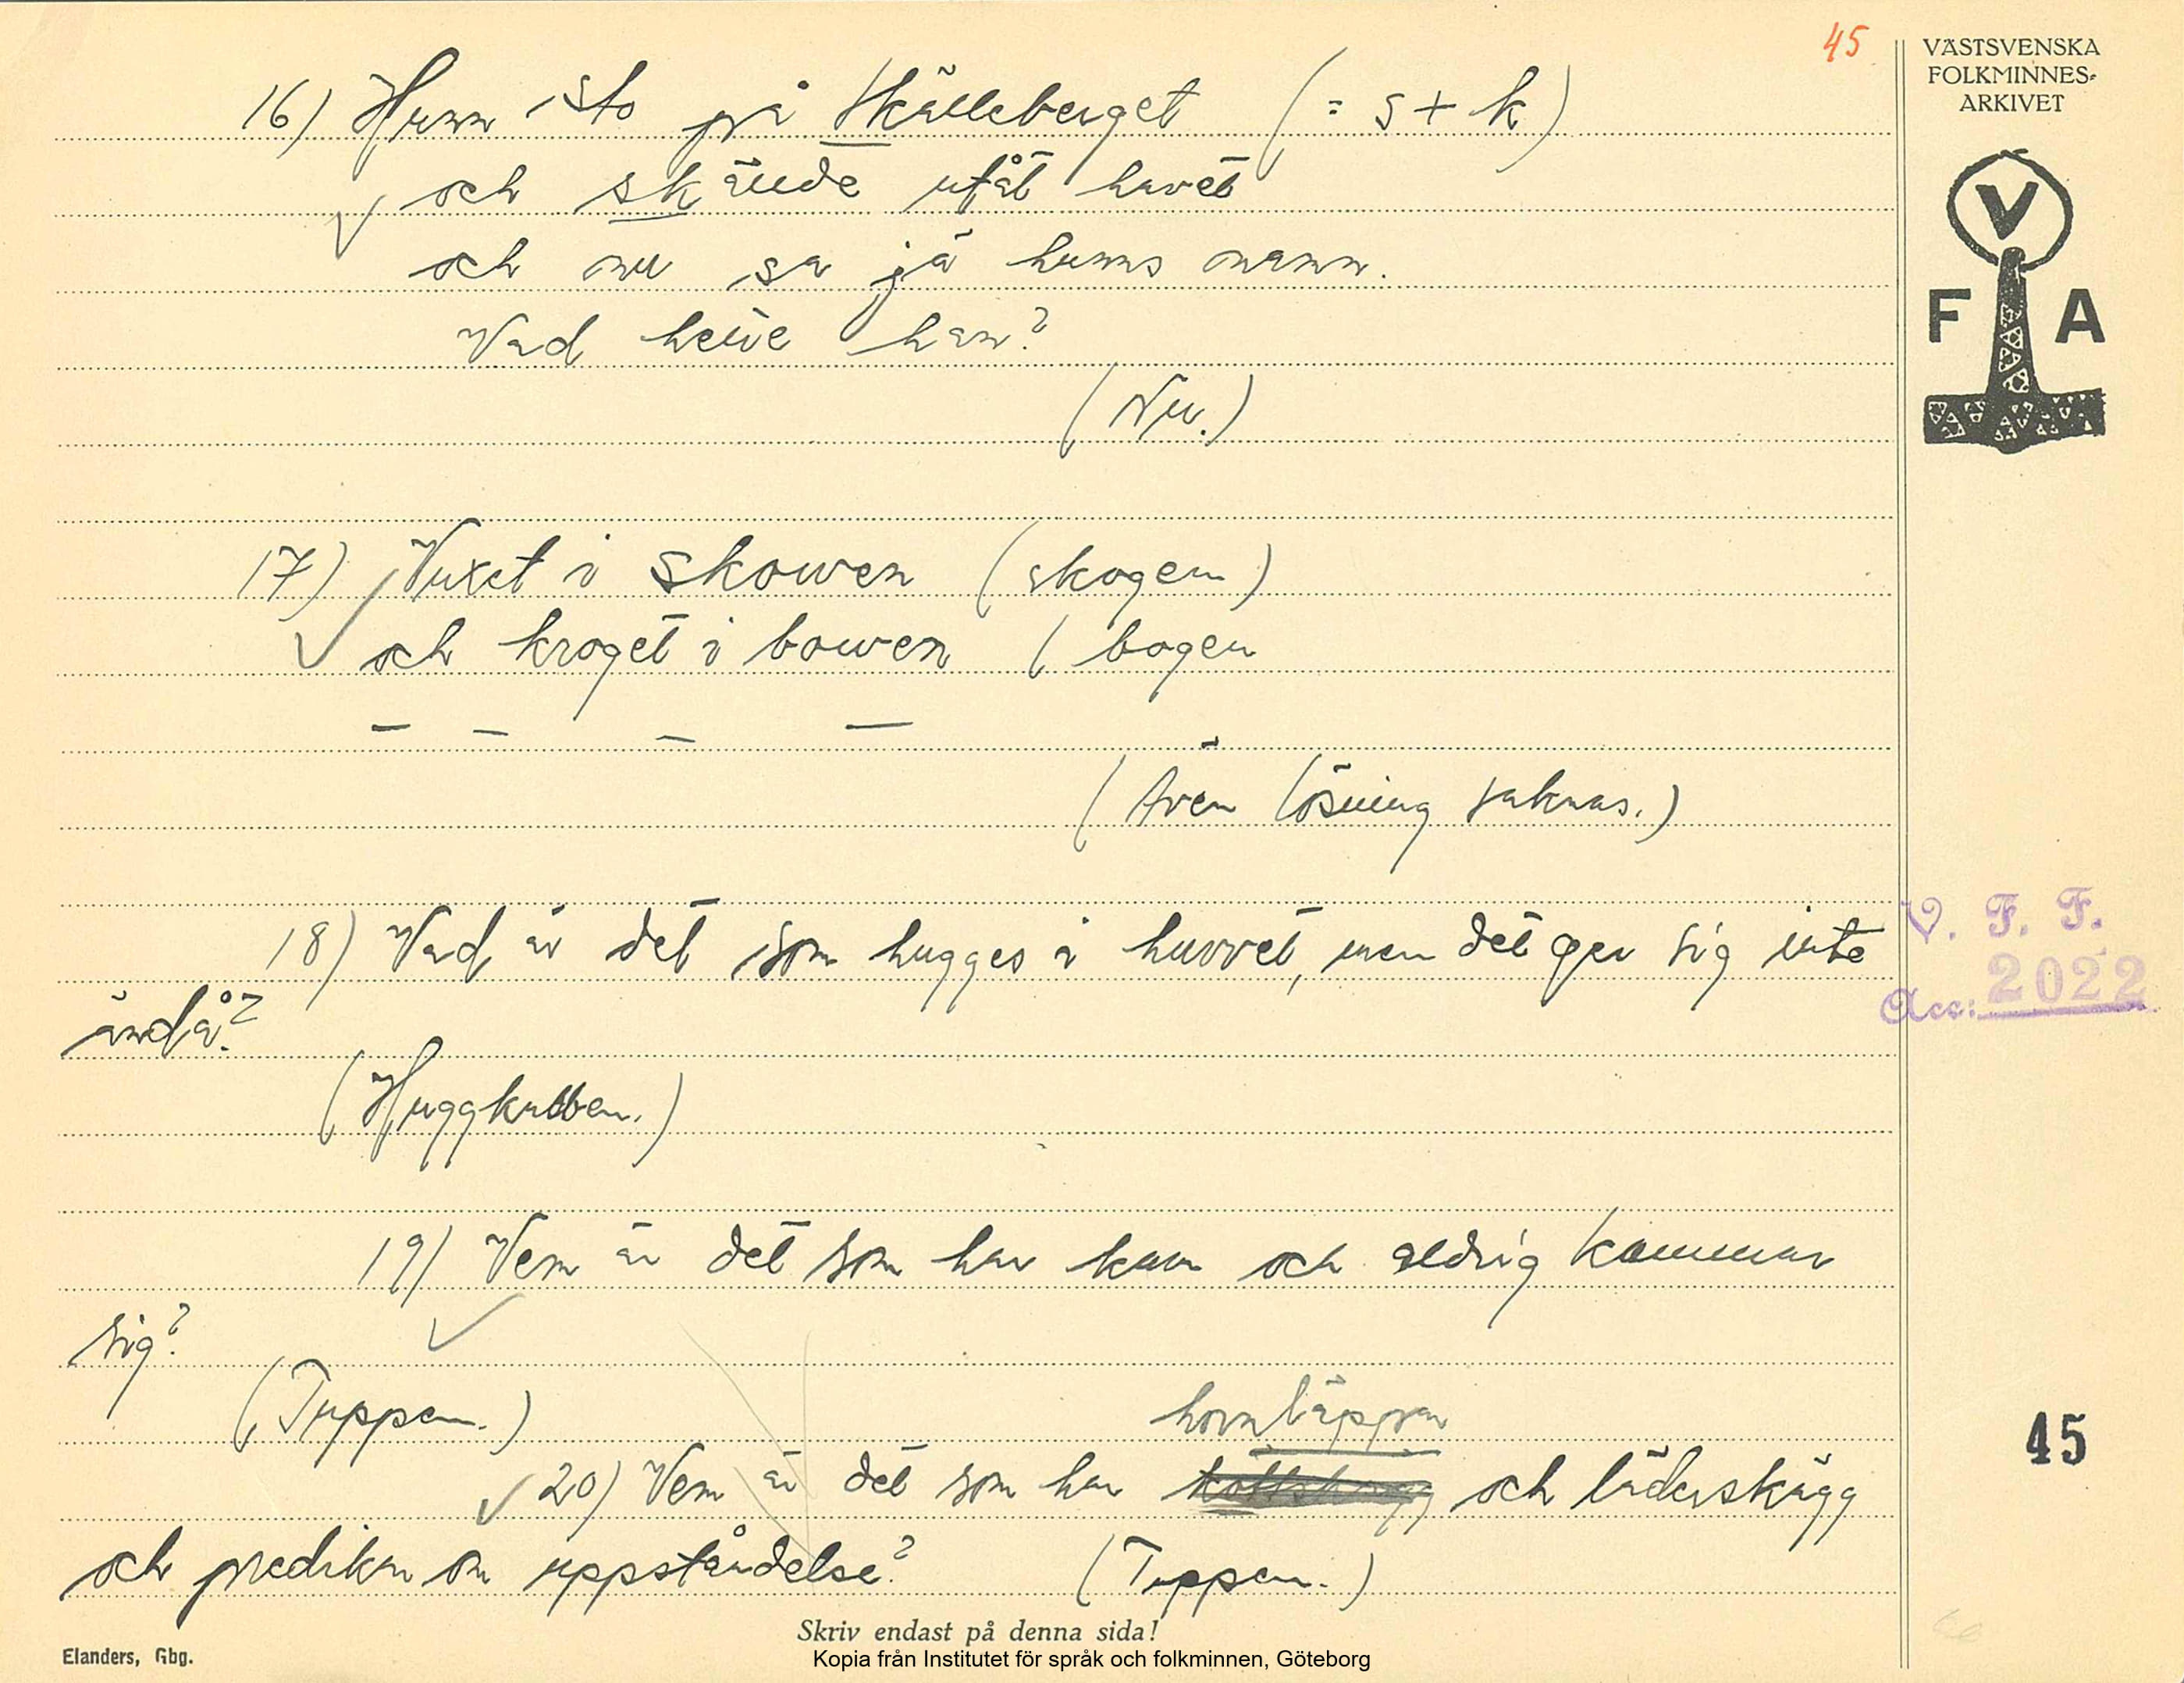 45
VÄSTSVENSKA
FOLKMINNES-
ARKIVET
V
F A
16) Hunn sto på Skälleberget (= s + k)
och skälde utåt havet
och nu sa jä hunns mann.
Vad hette han?
(Nu.)
17) Vuxet i skowen (skogen)
och kroget i bowen ( bogen
— — — — —
(Även lösning saknas.)
18) Vad är det som hugges i huvvet, men det ger sig inte
ändå?
(Huggkubben.)
19) Vem är det som har kam och aldrig kammar
sig?
(Tuppen.)
hornläppar
20) Vem är det som har och läderskägg
och predikar om uppståndelse? (Tuppen.)
V. F. F.
Acc: 2022
45
Skriv endast på denna sida!
Elanders, Gbg.
Kopia från Institutet för språk och folkminnen, Göteborg